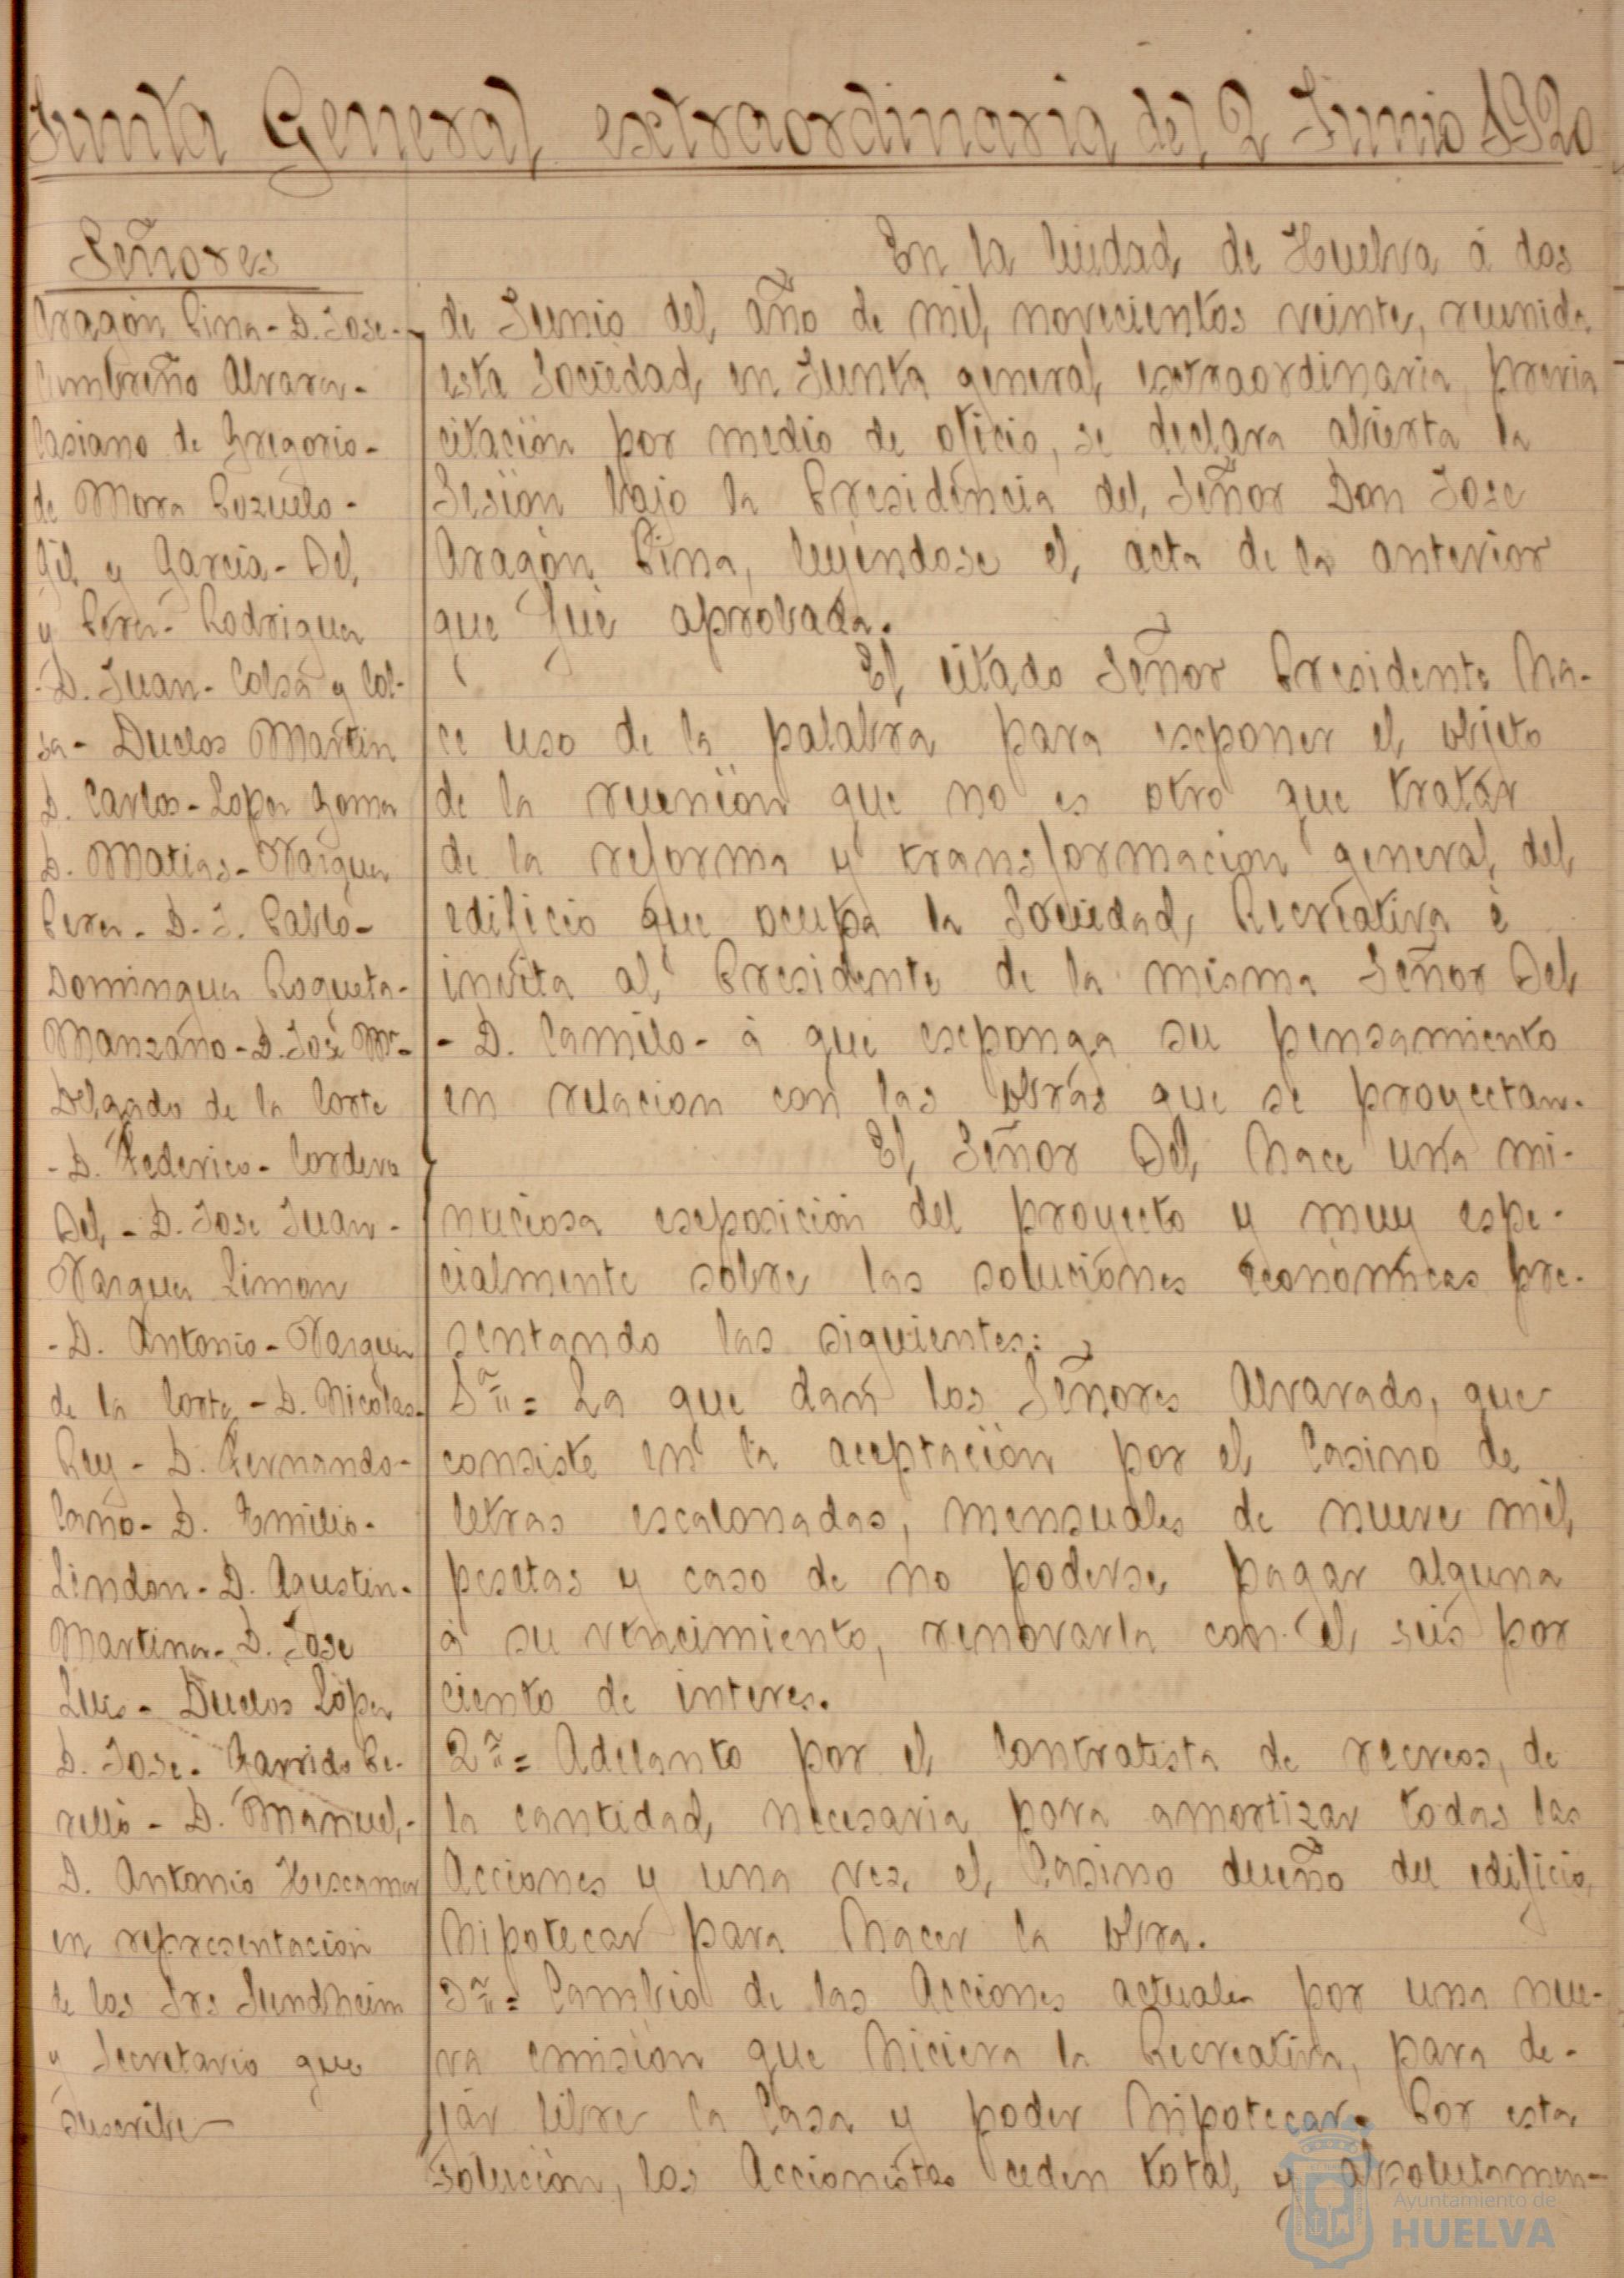 Junta General extraordinaria del 2 Junio 1920
Señores
Aragón Pina - D. Jose -
Cumbreño Alvarez -
Casiano de Gregorio -
de Mora Pozuelo -
Gil y García - Del
y Perez - Rodriguez
- D. Juan - Colsa y Col-
sa - Duclos Martin
D. Carlos - Lopez Gomez
D. Matias - Vazquez
Perez - D. J. Pablo -
Dominguez Roqueta -
Manzano - D. José Mª -
Delgado de la Corte
- D. Federico - Cordero
Del - D. Jose Juan -
Vazquez Limon
- D. Antonio - Vazquez
de la Corte - D. Nicolas -
Rey - D. Fernando -
Caño - D. Emilio -
Lindon - D. Agustin -
Martinez - D. Jose
Luis - Duclos López
D. Jose - Garrido Pe-
rello - D. Manuel -
D. Antonio
en representacion
de los Srs Sundheim
y Secretario que
suscribe -
En la Ciudad de Huelva á dos
de Junio del año de mil novecientos veinte, reunida
esta Sociedad en Junta general extraordinaria previa
citación por medio de oficio, se declara abierta la
Sesión bajo la Presidencia del Señor Don Jose
Aragón Pina, leyéndose el acta de la anterior
que fué aprobada.
El citado Señor Presidente ha-
ce uso de la palabra para esponer el objeto
de la reunión que no es otro que tratar
de la reforma y transformacion general del
edificio que ocupa la Sociedad Recreativa é
invita al Presidente de la misma Señor Del
- D. Camilo - á que esponga su pensamiento
en relacion con las obras que se proyectan.
El Señor Del hace una mi-
nuciosa esposición del proyecto y muy espe-
cialmente sobre las soluciones económicas pre-
sentando las siguientes:
1ª = La que dan los Señores Alvarado, que
consiste en la aceptación por el Casino de
letras escalonadas, mensuales de nueve mil
pesetas y caso de no poderse pagar alguna
á su vencimiento, renovarla con el seis por
ciento de interes.
2ª = Adelanto por el Contratista de recreos, de
la cantidad necesaria para amortizar todas las
Acciones y una vez el Casino dueño del edificio,
hipotecar para hacer la obra.
3ª = Cambio de las Acciones actuales por una nue-
va emisión que hiciera la Recreativa, para de-
jar libre la Casa y poder hipotecar. Por esta
solución, los Accionistas ceden total y absolutamen-
Ayuntamiento de
HUELVA